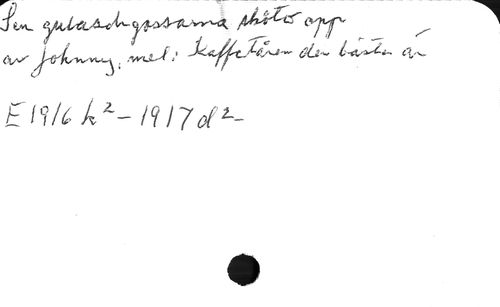 Sen gulaschgossarna sköto opp
av Johnny, mel: Kaffetåren den bästa är
E 1916 k² - 1917 d² -